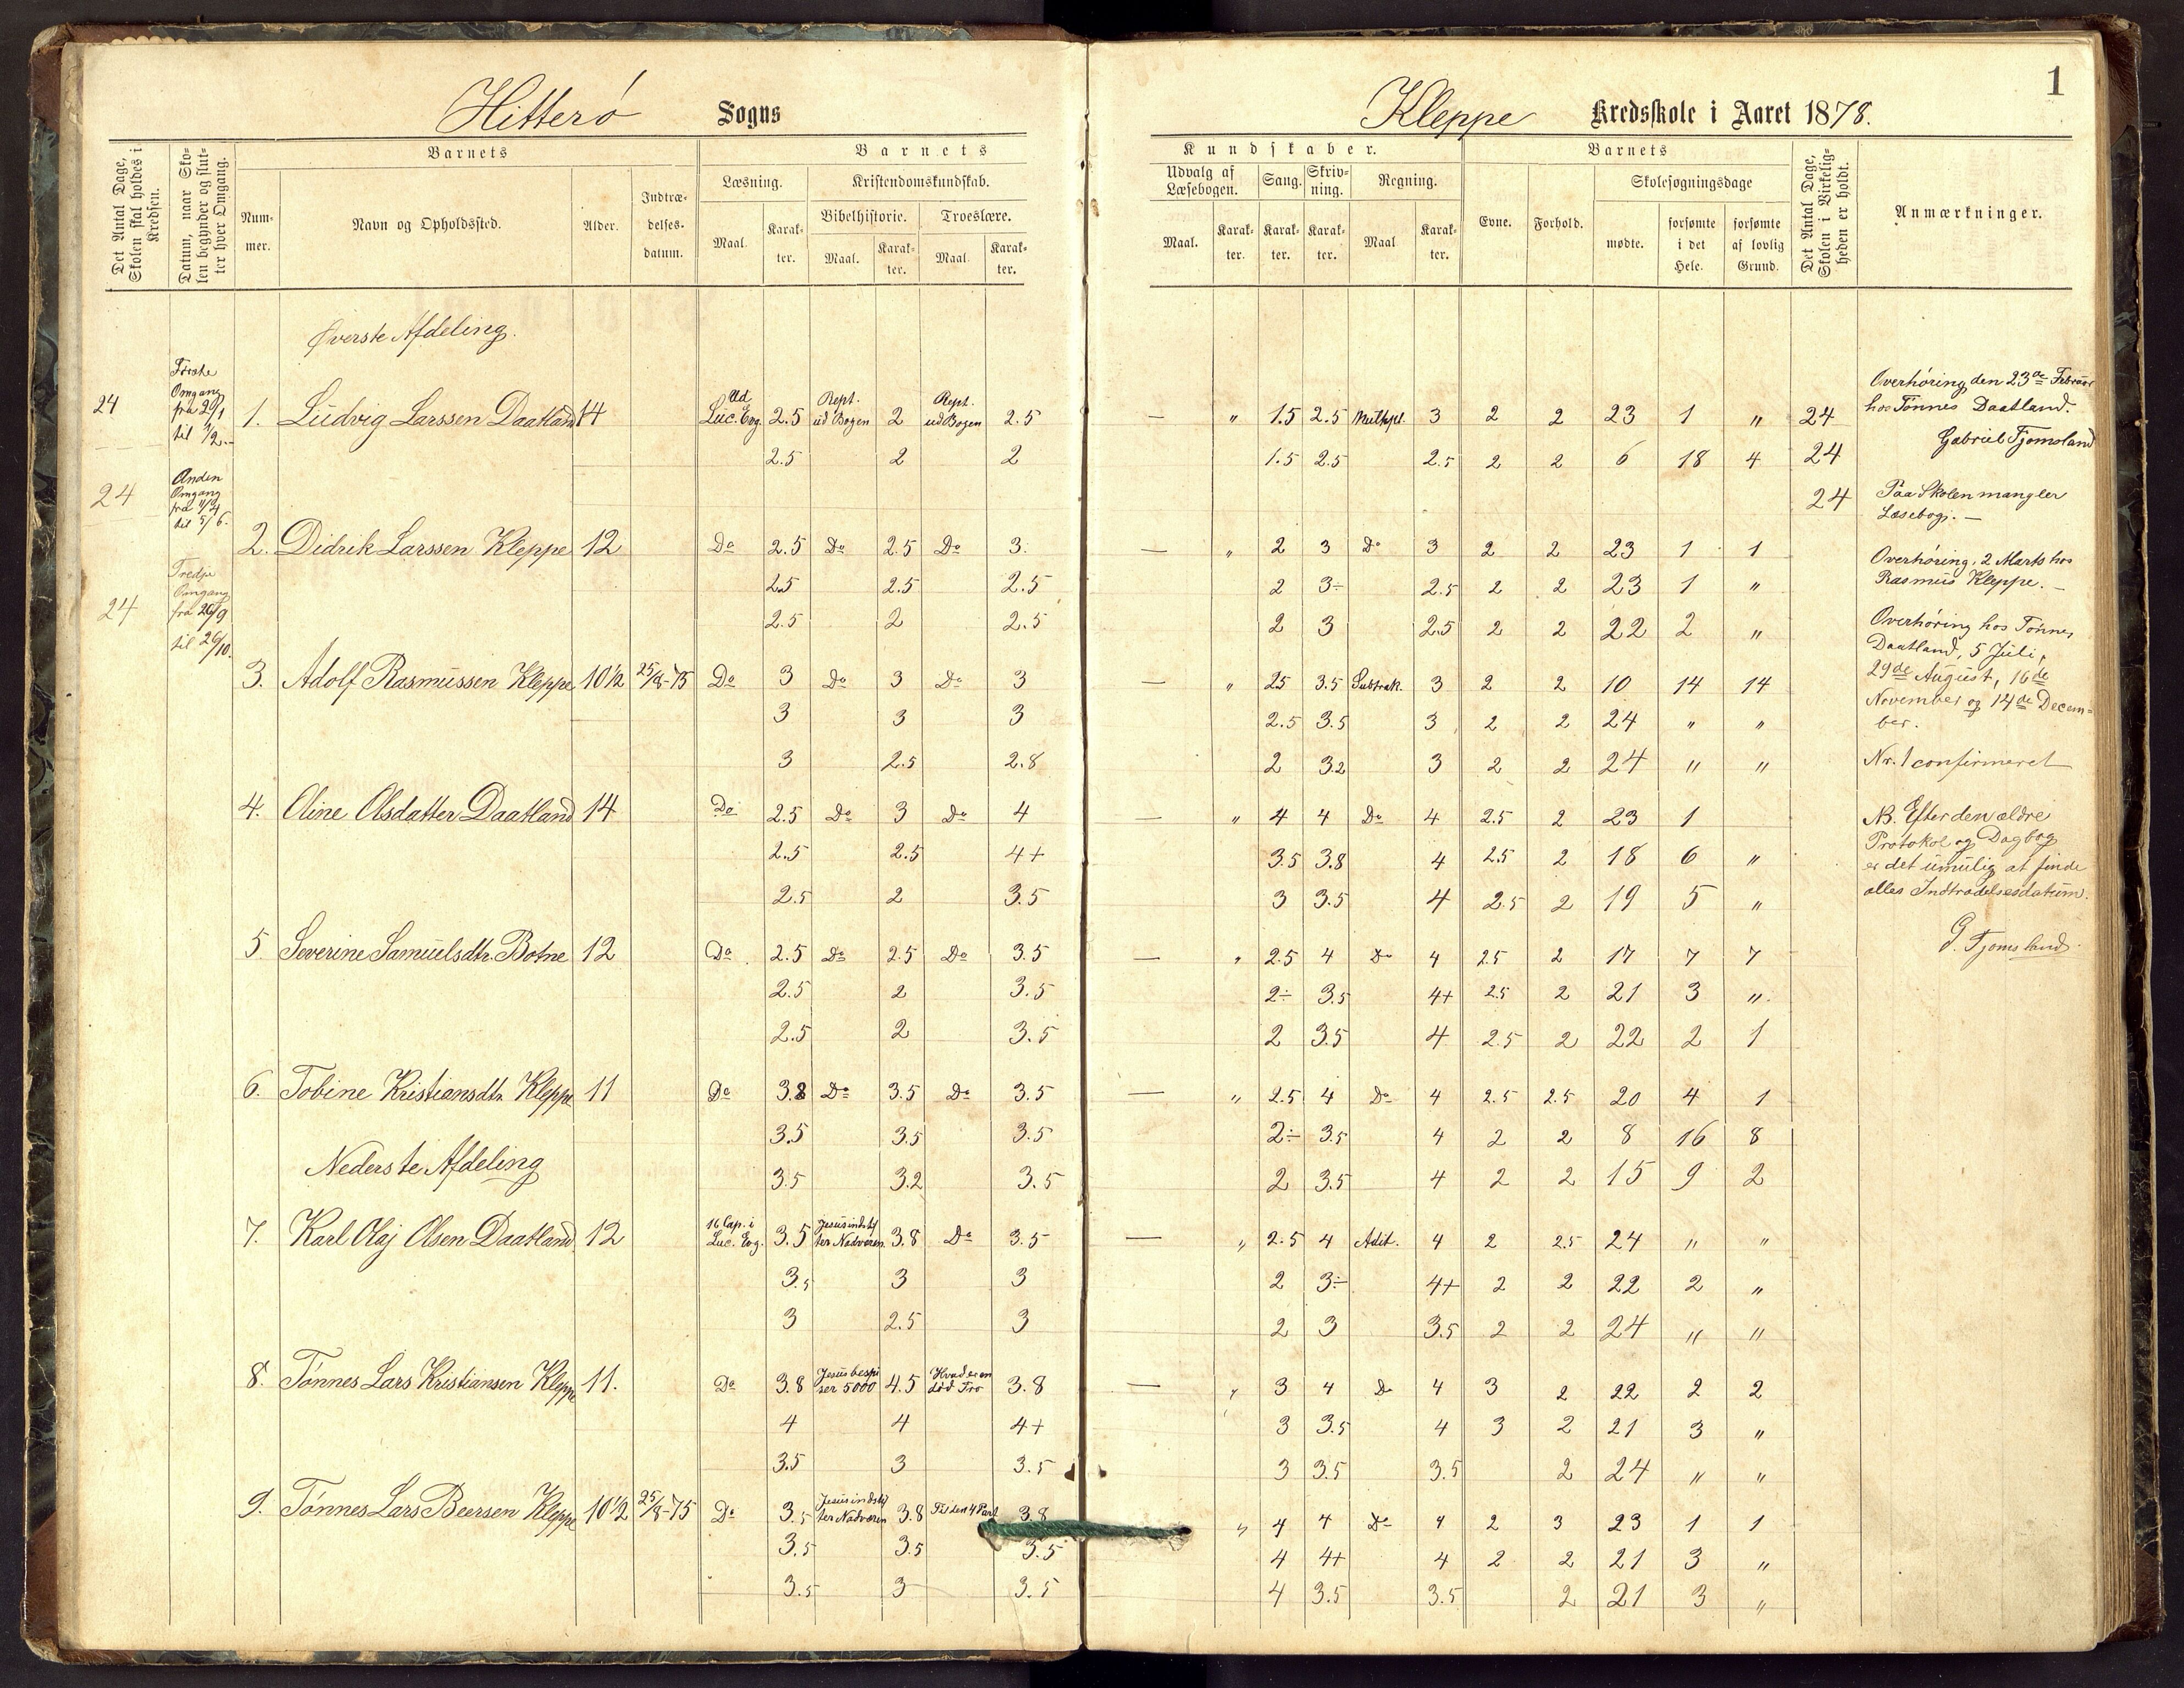 1
Hitterø Sogns
Kleppe Kredsskole i Aaret 1878.
Det Antal Dage, Skolen skal holdes i Kredsen.
Datum, naar Skolen begynder og slutter hver Omgang.
Barnets
Nummer.
Navn og Opholdssted.
Alder.
Indtrædelsesdatum.
Barnets
Læsning.
Kristendomskundskab.
Maal.
Karakter.
Bibelhistorie.
Troeslære.
Maal.
Karakter.
Maal.
Karakter.
Kundskaber.
Udvalg af Læsebogen.
Sang.
Skrivning.
Regning.
Maal.
Karakter.
Karakter.
Karakter.
Maal
Karakter.
Barnets
Evne.
Forhold.
Skolesøgningsdage
mødte.
forsømte i det Hele.
forsømte af lovlig Grund.
Det Antal Dage, Skolen i Virkeligheden er holdt.
Anmærkninger.
Øverste Afdeling.
24 Første Omgang fra 20/1 til 1/2.
24 Anden Omgang fra 4/4 til 5/6.
24 Tredje Omgang fra 20/9 til 26/10.
1. Ludvig Larssen Daatland 14 Ud Luc. Evg. 2.5 Rept. ud Bogen 2 Rept. ud Bogen 2.5 — " 1.5 2.5 Multpl. 3 2 2 23 1 " 24
2.5 2 2 1.5 2.5 2.5 2 2 6 18 4 24
24
2. Didrik Larssen Kleppe 12 Do 2.5 Do 2.5 Do 3. — " 2 3 Do 3 2 2 23 1 1
2.5 2.5 2.5 2 3÷ 2.5 2 2 23 1 "
2.5 2 2.5 2 3 2.5 2 2 22 2 "
3. Adolf Rasmussen Kleppe 10 1/2 25/8-75 Do 3 Do 3 Do 3 — " 2.5 3.5 Subtrak. 3 2 2 10 14 14
3 3 3 2.5 3.5 3 2 2 24 " "
3 2.5 2.8 2 3.2 3 2 2 24 " "
4. Oline Olsdatter Daatland 14 Do 2.5 Do 3 Do 4 — " 4 4 Do 4 2.5 2 23 1
2.5 2.5 4+ 3.5 3.8 4 2.5 2 18 6 "
2.5 2 3.5 3 3.5 4 2.5 2 19 5 "
5 Severine Samuelsdtr. Botne 12 Do 2.5 Do 2.5 Do 3.5 — " 2.5 4 Do 4 2.5 2 17 7 7
2.5 2 3.5 2÷ 3.5 4+ 2.5 2 21 3 "
2.5 2 3.5 2 3.5 4 2.5 2 22 2 1
6. Tobine Kristiansdtr. Kleppe 11 Do 3.8 Do 3.5 Do 3.5 — " 2.5 4 Do 4 2.5 2.5 20 4 1
3.5 3.5 3.5 2÷ 3.5 4 2 2 8 16 8
Nederste Afdeling
3.5 3.2 3.5 2 3.5 4 2 2 15 9 2
7. Karl Olaj Olsen Daatland 12 16 Cap. i Luc. Evg. 3.5 Jesus indstifter Nadveren 3.8 Do 3.5 — " 2.5 4 Adit. 4 2 2.5 24 " "
3.5 3 3 2 3÷ 4+ 2 2 22 2 "
3 2.5 3 2 3 3.5 2 2 24 " "
8. Tønnes Lars Kristiansen Kleppe 11. Do 3.8 Jesus bespiser 5000 4.5 Hvad er en død Tro 3.8 — " 3 4 Do 4 3 2 22 2 2
4 4 4+ 3 3.5 4 3 2 21 3 "
3.5 3 3.5 3 3.5 3.5 2 24 " "
9. Tønnes Lars Beersen Kleppe 10 1/2 25/8-75 Do 3.5 Jesus indstifter Nadveren 3.8 Til den 4 Part 3.8 " 4 4 Do 4 2 3 23 1 1
3.5 3.5 3.5 4 4+ 4 2 2 21 3 "
3.5 3 3.5 4 3.5 3.5 2 21 3 "
Overhøring den 23de Februar
hos Tønnes Daatland.
Gabriel Fjomsland
Paa Skolen mangler
Læsebog. —
Overhøring, 2 Marts hos
Rasmus Kleppe. —
Overhøring hos Tønnes
Daatland, 5 Juli,
29de August, 16de
November og 14de Decem=
ber.
Nr. 1 confirmeret
NB. Efter den ældre
Protokol og Dagbog
er det umulig at finde
alles Indtrædelsesdatum.
G. Fjomsland